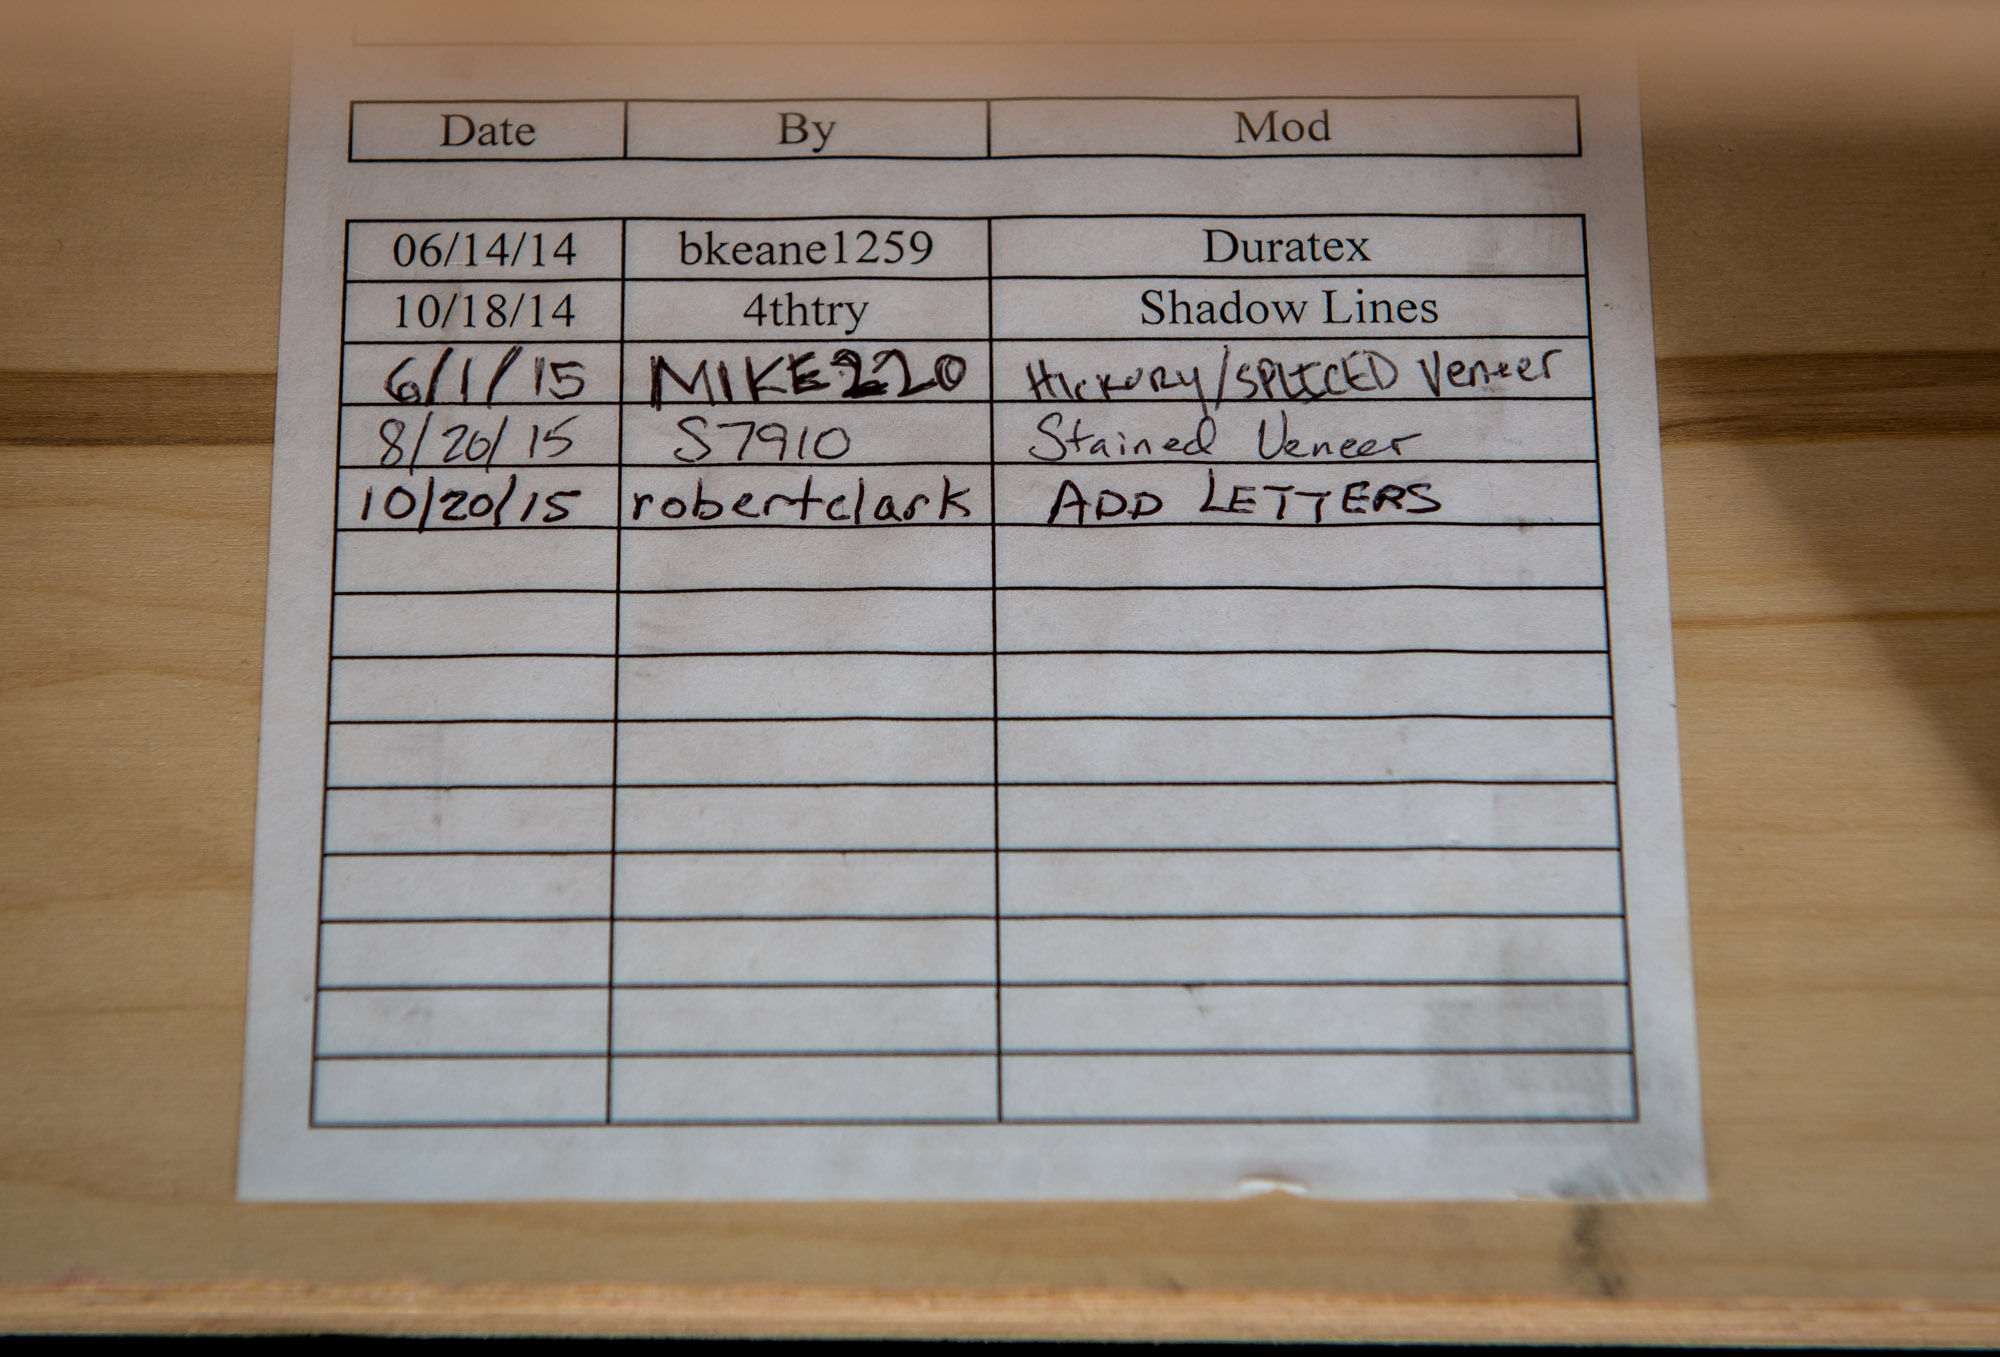 Date By Mod
06/14/14 bkeane1259 Duratex
10/18/14 4thtry Shadow Lines
6/1/15 MIKE220 Hickory/SPLICED Veneer
8/20/15 S7910 Stained Veneer
10/20/15 robertclark ADD LETTERS